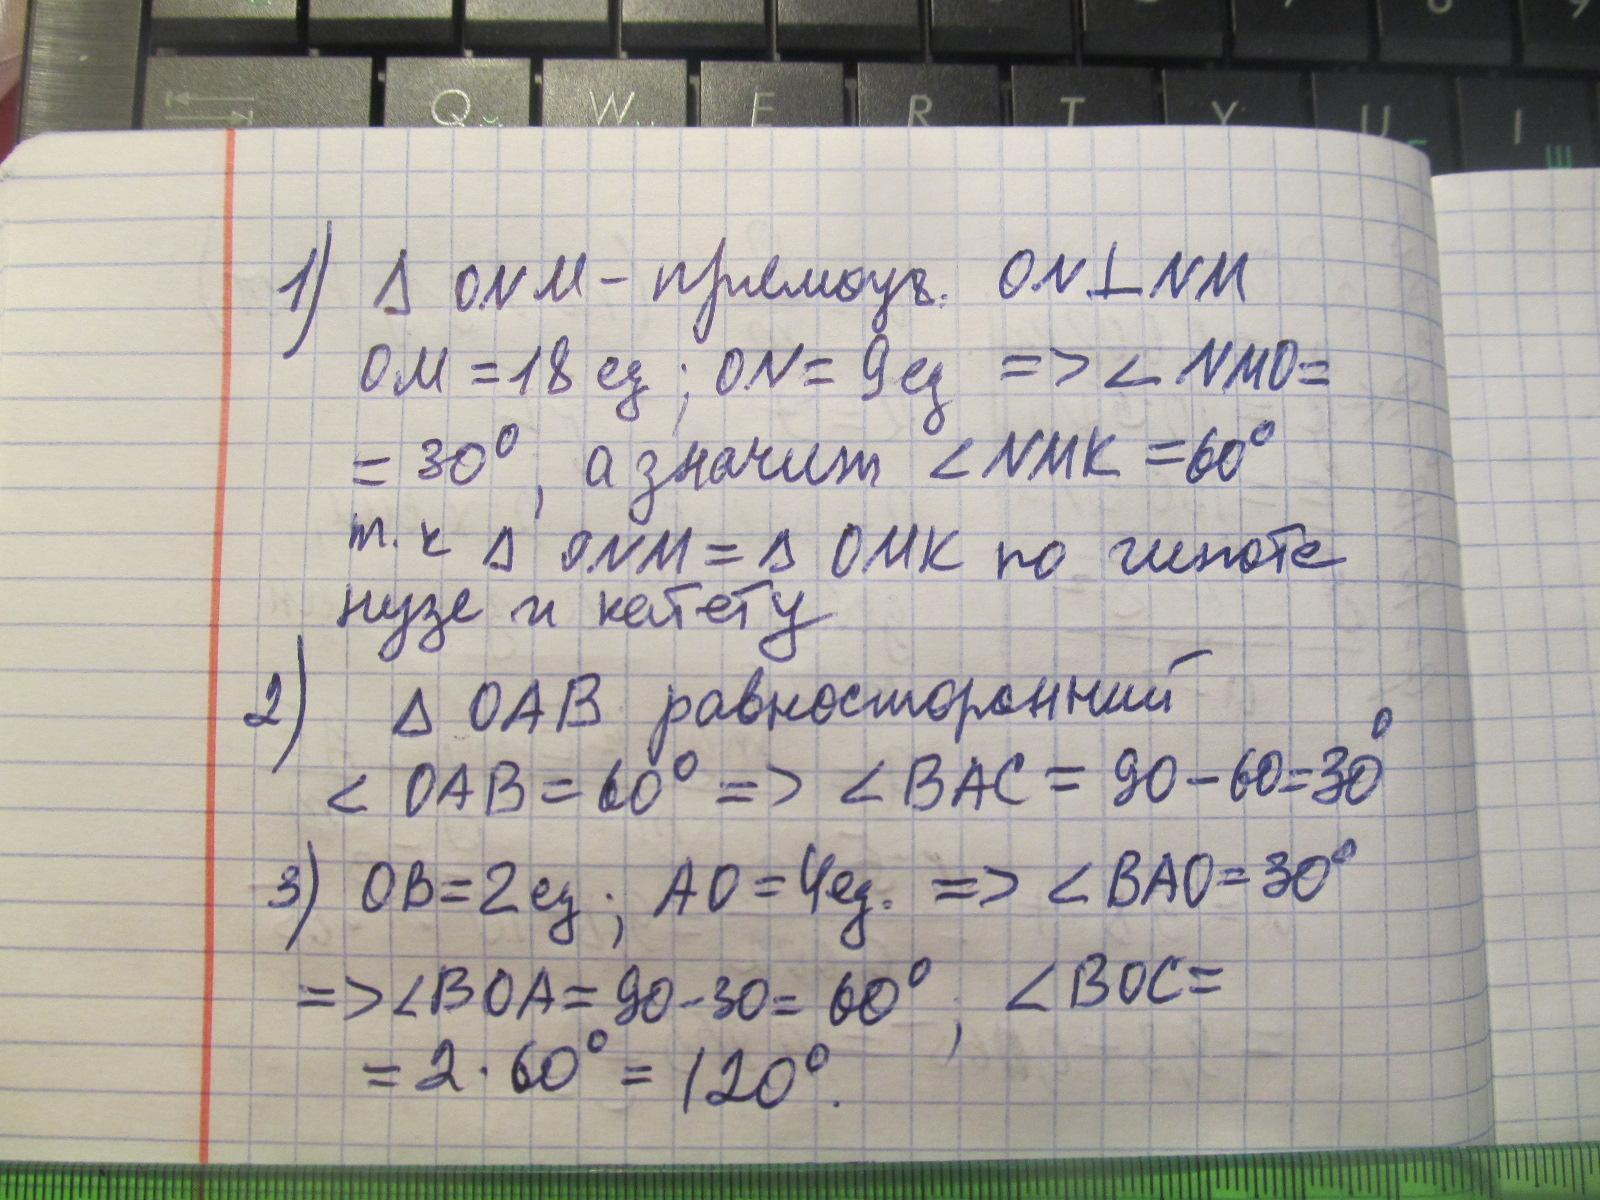 Q W E R T Y U I
й ш
1) Δ ONM - прямоуг. ON⊥NM
OM = 18 ед ; ON = 9 ед => < NMO =
= 30°, а значит < NMK = 60°
т.к Δ ONM = Δ OMK по гипоте
нузе и катету
2) Δ OAB равносторонний
< OAB = 60° => < BAC = 90 - 60 = 30°
3) OB = 2 ед ; AO = 4 ед. => < BAO = 30°
=> < BOA = 90 - 30 = 60° , < BOC =
= 2 · 60° = 120°.